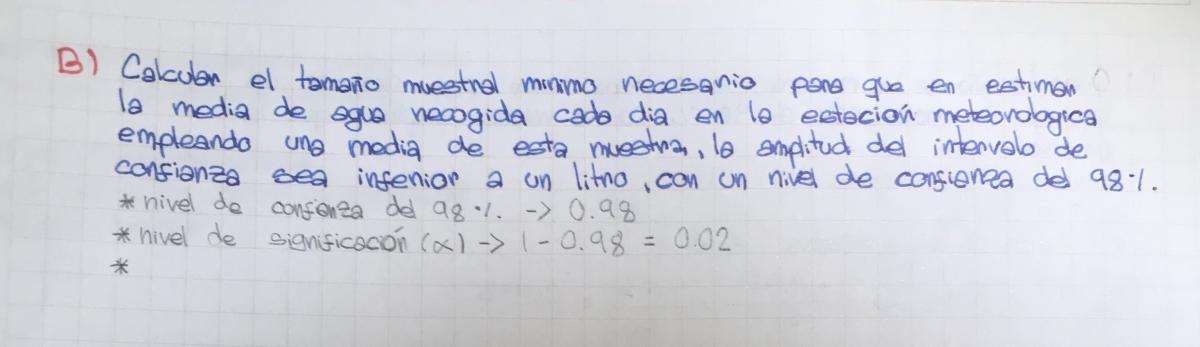 B) Calcular el tamaño muestral mínimo necesario para que en estimar
la media de agua recogida cada dia en la estación meteorologica
empleando una media de esta muestra, la amplitud del intervalo de
confianza sea inferior a un litro, con un nivel de confianza del 98%.
* nivel de confianza del 98%. -> 0.98
* nivel de significación (α) -> 1 - 0.98 = 0.02
*